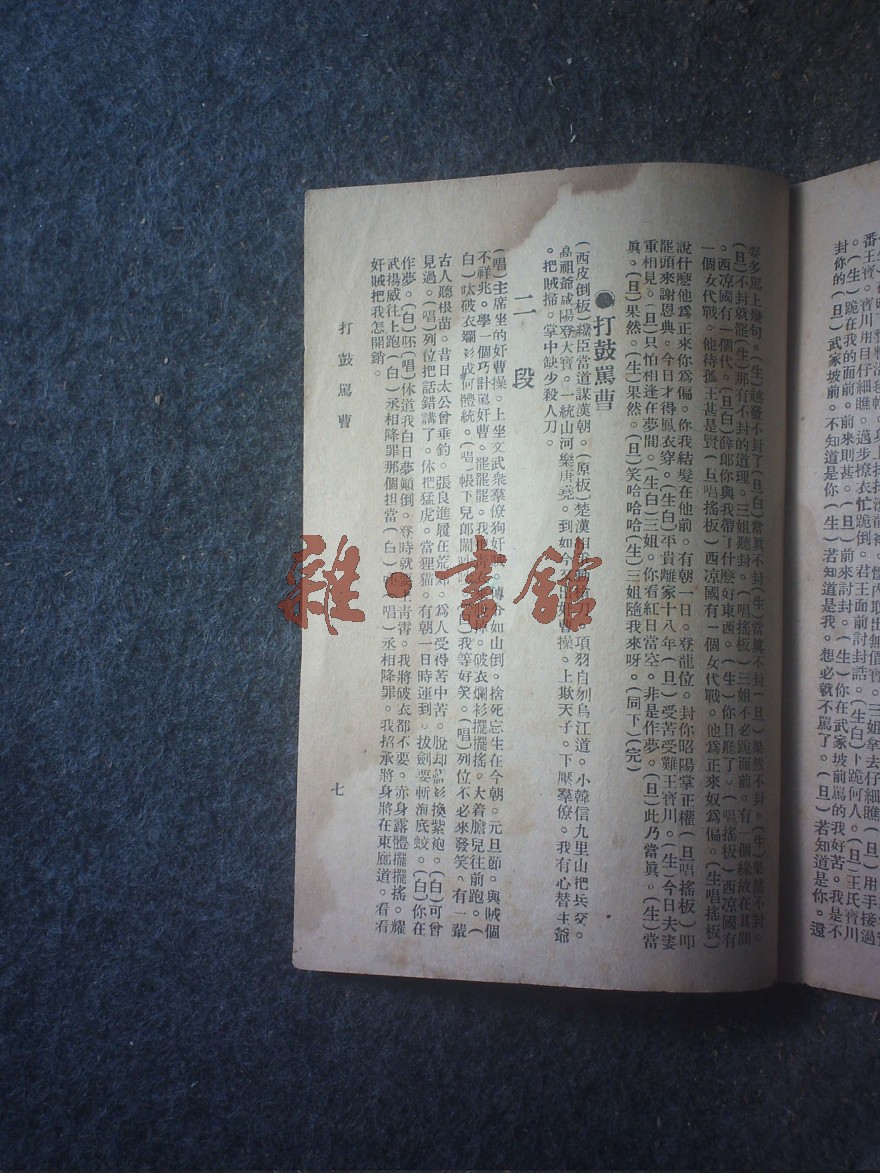 番王寶
封你的(旦)武家坡前。不知道是你(生)若知道是我。想必就不罵了。(旦)若知道是你。還
要多罵上幾句。(生)越發不封了(旦白)當眞不封(生)當眞不封(旦)果然不封。(生)果然不封。
(旦)不封就罷(生)那有不封的道理。三姐聽封。(唱搖板)三姐不必跪面前。有一個緣故在其間
。西凉國有一個代。(旦白)薛郎你與我帶了什麽好東西。(生)你日聽了。(唱搖板)西凉國有
一個女代戰。他待孤王甚是賢(旦唱搖板)西凉國有一個女代戰。他爲正來奴爲偏。(生唱搖板)
說什麽他爲正來你爲偏。你我結髮在他前。有朝一日。登龍位。封你昭陽掌正權(旦唱搖板)叩
罷頭來謝恩典。今日才得鳳衣穿。(生白)平貴離家十八年(旦)受苦受難王寶川。(生)今日夫妻
重相見。(旦)只怕相逢在夢間。(生白)三姐。你看紅日當空。非是作夢。(旦)此乃當眞。(生)當
眞。(旦)果然。(生)果然。(旦)笑哈哈哈(生)三姐隨我來呀。(同下)(完)
●打鼓罵曹
(西皮倒板)讒臣當道謀漢朝。(原板)楚漢相項羽自刎烏江道。小韓信九里山把兵交。
高祖爺咸陽登大寶。一統山河樂唐堯。到如今曹操。上欺天子。下壓羣僚。我有心替主爺
。把賊掃。掌中缺少殺人刀。
二段
(唱)主席坐的奸曹操。上坐文武衆羣僚狗奸如山倒。捨死忘生在今朝。元旦節。與賊個
不祥兆。學一個巧計罵奸曹。罷罷罷。我破衣爛衫擺擺搖。大着膽兒往前跑。(
白)呔破衣爛衫成何體統。(唱)帳下兒郎鬧我等好笑。(唱)列位不必來發笑。有一輩
古人聽根苗。昔日太公曾垂釣。張良進履在荒郊。爲人受得苦中苦。脫却藍衫換紫袍。(白)可曾
見過。(唱)列位把話錯講了。休把猛虎。當狸猫。有朝一日時運到。拔劍要斬海底蛟。(白)你在
作夢。(白)呸(唱)休道我白日夢顚倒。登時就要上青霄。我將破衣都不要。赤身露體擺擺搖。耀
武揚威往上跑(白)丞相降罪那個担當(白)(唱)丞相降罪。我招承將身將在東廊道。看看
奸賊把我怎開銷。
打鼓罵曹
七
雜·書館